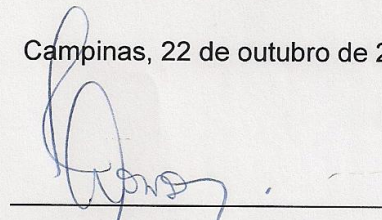 Campinas, 22 de outubro de 2